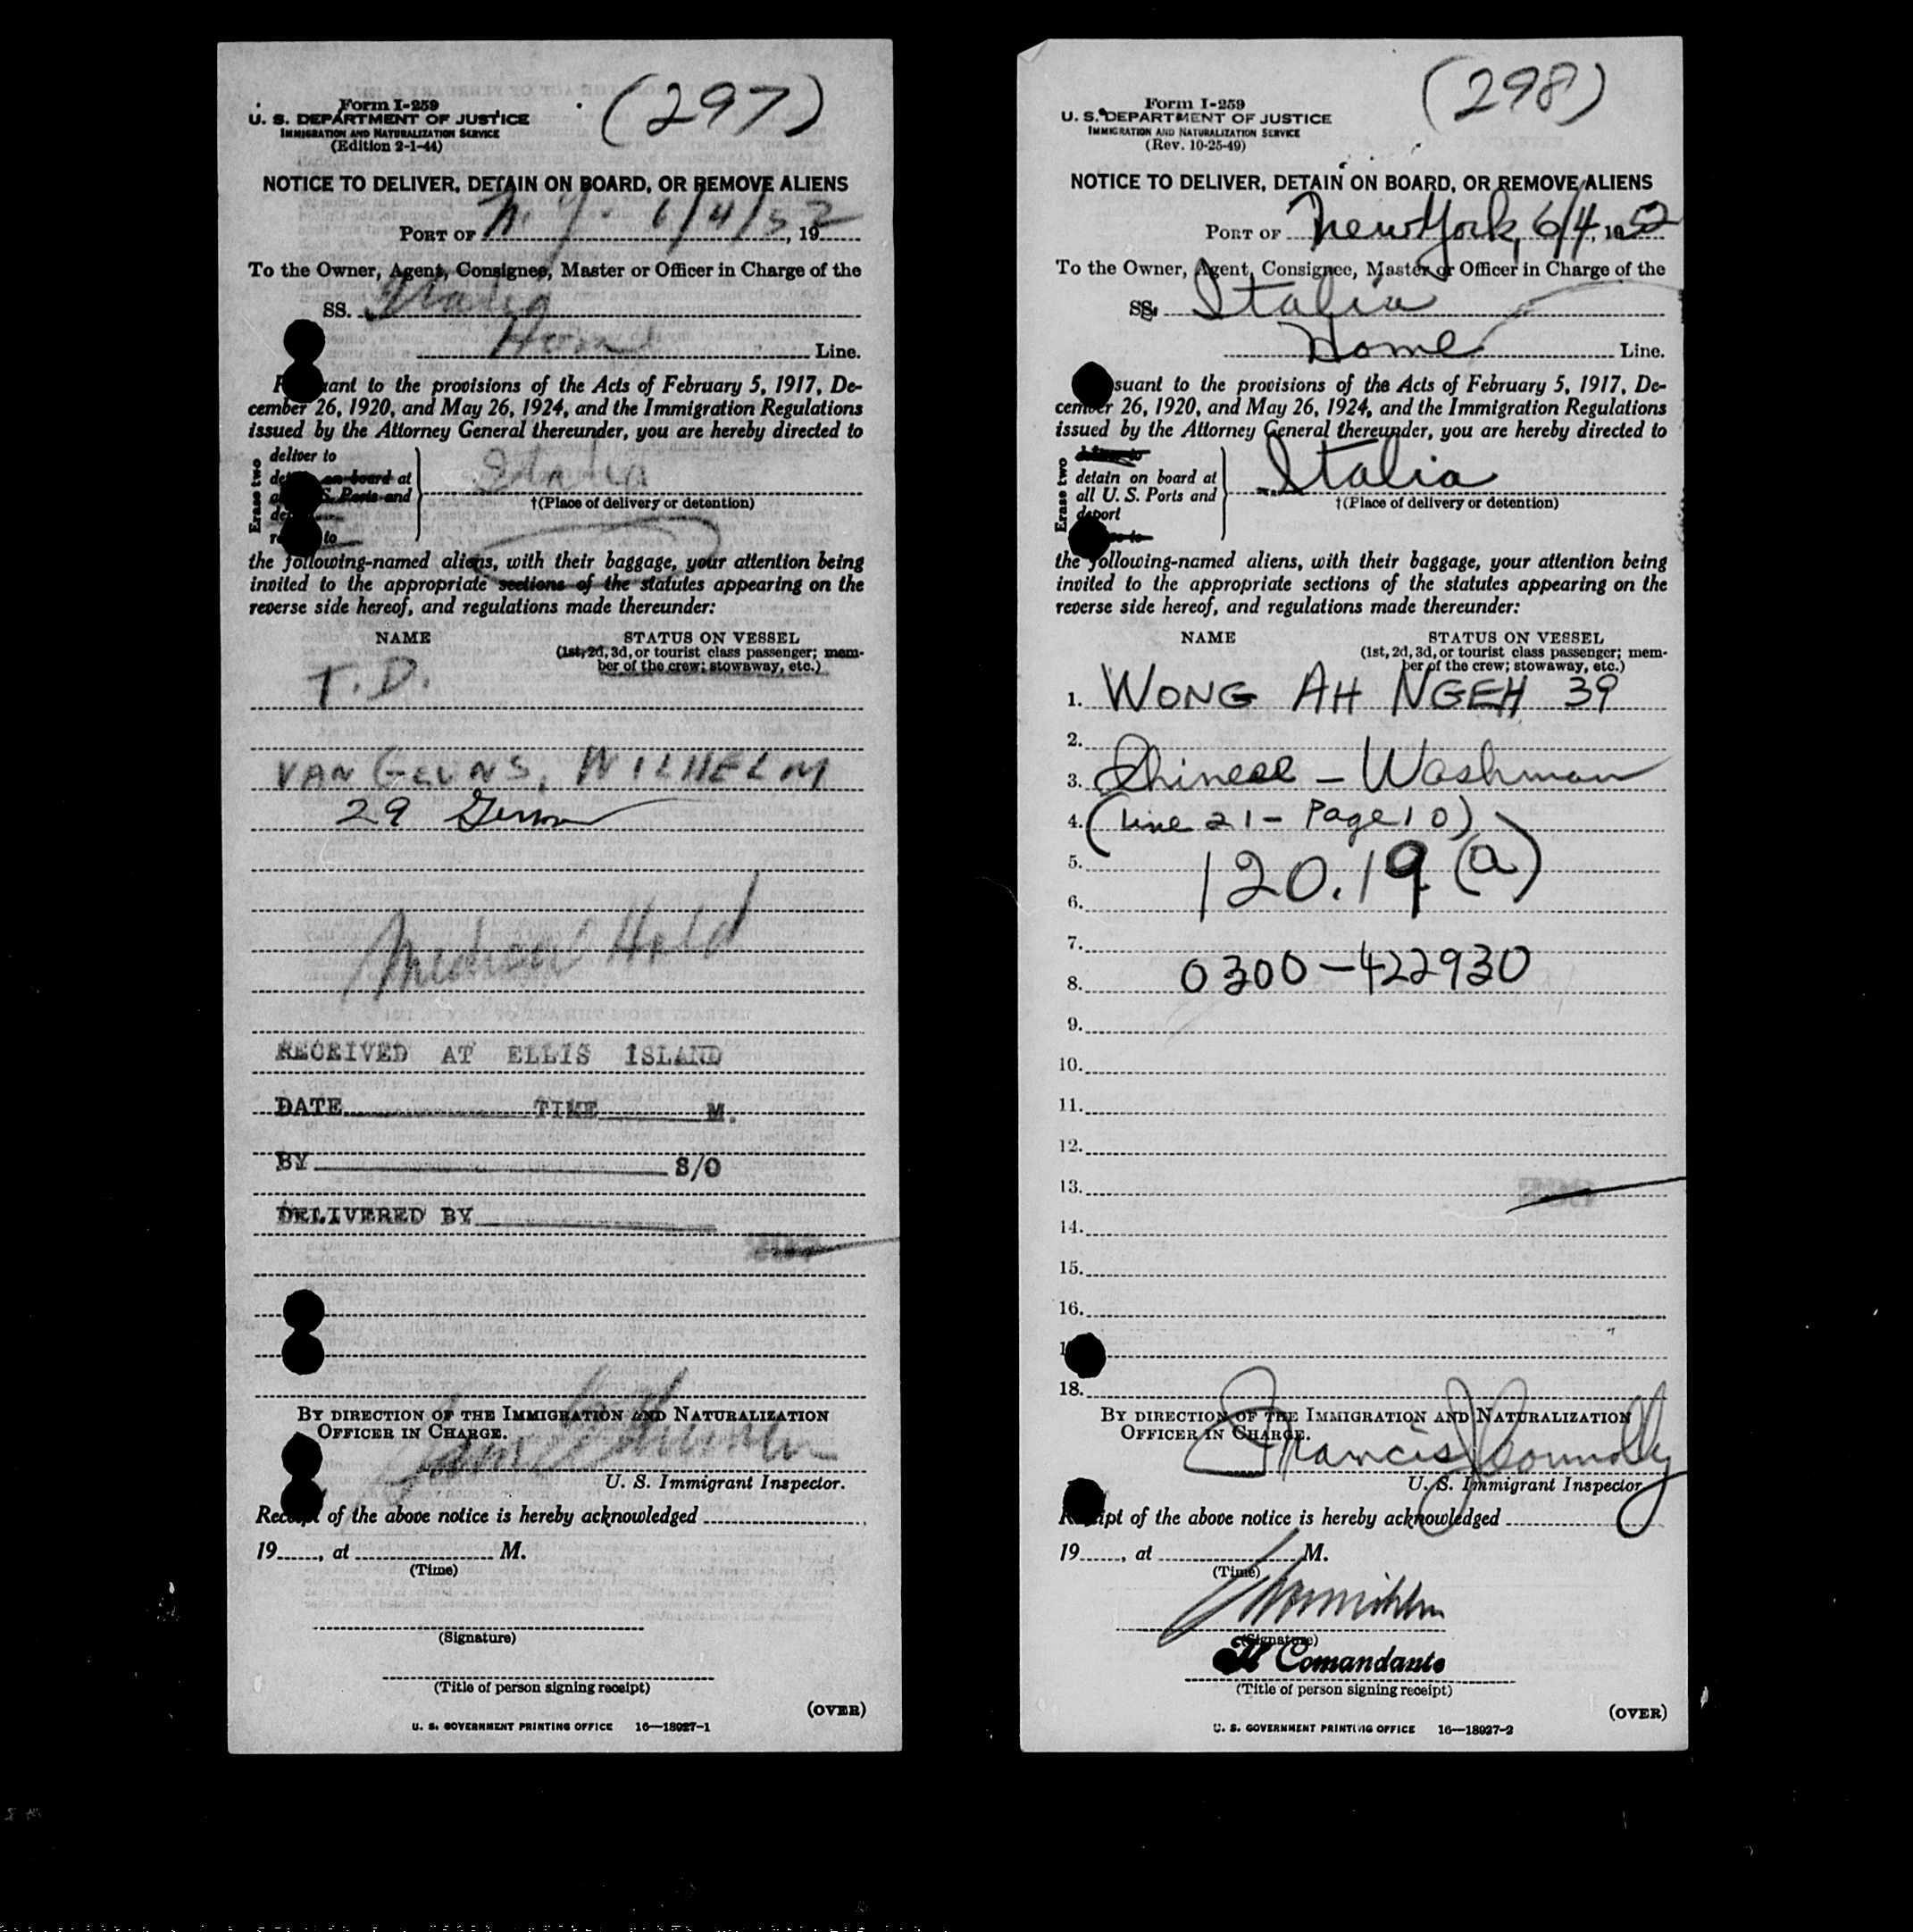 Form I-259
U. S. DEPARTMENT OF JUSTICE
IMMIGRATION AND NATURALIZATION SERVICE
(Edition 2-1-44)
(297)
NOTICE TO DELIVER, DETAIN ON BOARD, OR REMOVE ALIENS
PORT OF N.Y. 6/4/52, 19
To the Owner, Agent, Consignee, Master or Officer in Charge of the
SS. Italia
Home Line.
ant to the provisions of the Acts of February 5, 1917, De-
cember 26, 1920, and May 26, 1924, and the Immigration Regulations
issued by the Attorney General thereunder, you are hereby directed to
Erase two
deliver to
on board at
S. Ports and
to
Italia
†(Place of delivery or detention)
the following-named aliens, with their baggage, your attention being
invited to the appropriate sections of the statutes appearing on the
reverse side hereof, and regulations made thereunder:
NAME
STATUS ON VESSEL
(1st, 2d, 3d, or tourist class passenger; mem-
ber of the crew; stowaway, etc.)
T.D.
VAN GEUNS, WILHELM
29 Germ
Medical Hold
RECEIVED AT ELLIS ISLAND
DATE TIME M.
BY S/O
DELIVERED BY
BY DIRECTION OF THE IMMIGRATION AND NATURALIZATION
OFFICER IN CHARGE.
U. S. Immigrant Inspector.
Receipt of the above notice is hereby acknowledged
19, at M.
(Time)
(Signature)
(Title of person signing receipt)
(OVER)
U. S. GOVERNMENT PRINTING OFFICE 16—18027-1
Form I-259
U. S. DEPARTMENT OF JUSTICE
IMMIGRATION AND NATURALIZATION SERVICE
(Rev. 10-25-49)
(298)
NOTICE TO DELIVER, DETAIN ON BOARD, OR REMOVE ALIENS
PORT OF New York, 6/4, 1952
To the Owner, Agent, Consignee, Master or Officer in Charge of the
SS. Italia
Home Line.
suant to the provisions of the Acts of February 5, 1917, De-
cember 26, 1920, and May 26, 1924, and the Immigration Regulations
issued by the Attorney General thereunder, you are hereby directed to
Erase two
detain on board at
all U. S. Ports and
deport
Italia
†(Place of delivery or detention)
the following-named aliens, with their baggage, your attention being
invited to the appropriate sections of the statutes appearing on the
reverse side hereof, and regulations made thereunder:
NAME
STATUS ON VESSEL
(1st, 2d, 3d, or tourist class passenger; mem-
ber of the crew; stowaway, etc.)
1. WONG AH NGEH 39
2.
3. Chinese - Washman
4. (Line 21 - Page 10)
5. 120.19 (a)
6.
7.
8. 0300-422930
9.
10.
11.
12.
13.
14.
15.
16.
18.
BY DIRECTION OF THE IMMIGRATION AND NATURALIZATION
OFFICER IN CHARGE.
Francis J Connolly
U. S. Immigrant Inspector
Receipt of the above notice is hereby acknowledged
19, at M.
(Time)
(Signature)
Il Comandante
(Title of person signing receipt)
(OVER)
U. S. GOVERNMENT PRINTING OFFICE 16—18027-2